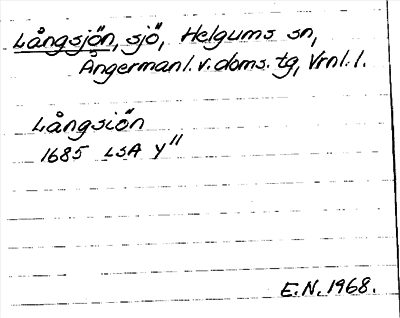 Långsjön, sjö, Helgums sn,
Ångermanl. v. doms. tg, Vrnl. l.
Långsiön
1685 LSA Y"
E.N. 1968.